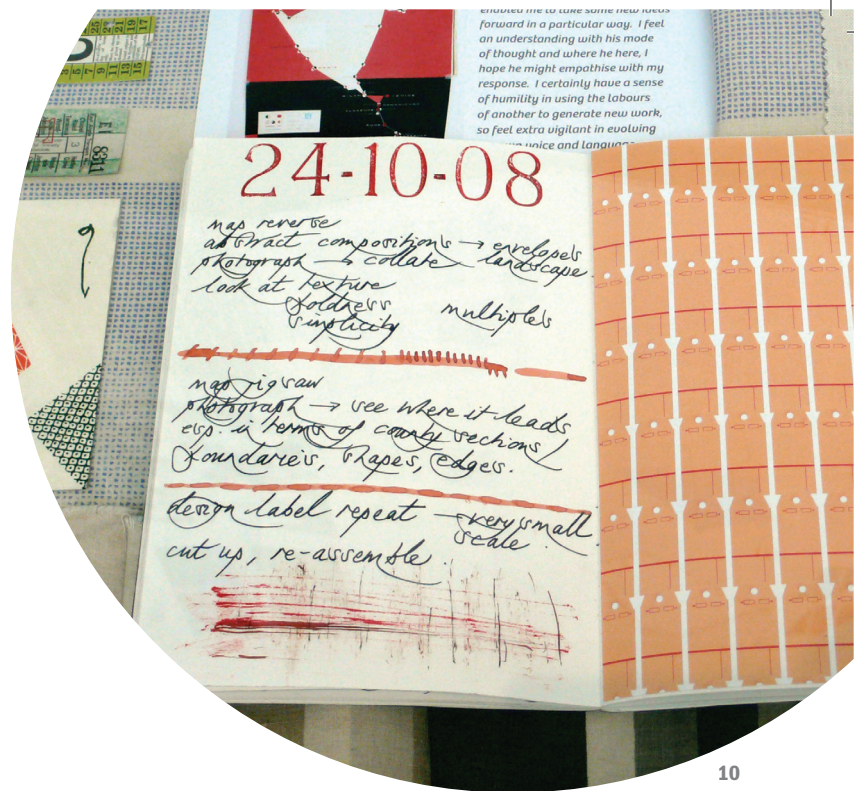 enabled me to take some new ideas
forward in a particular way. I feel
an understanding with his mode
of thought and where he here, I
hope he might empathise with my
response. I certainly have a sense
of humility in using the labours
of another to generate new work,
so feel extra vigilant in evolving
voice and language
24-10-08
map reverse
abstract compositions → envelopes
photograph → collate landscape
look at texture
boldness
simplicity
multiples
map jigsaw
photograph → see where it leads
esp. in terms of county sections /
boundaries, shapes, edges.
design label repeat – very small
scale.
cut up, re-assemble.
8311
10